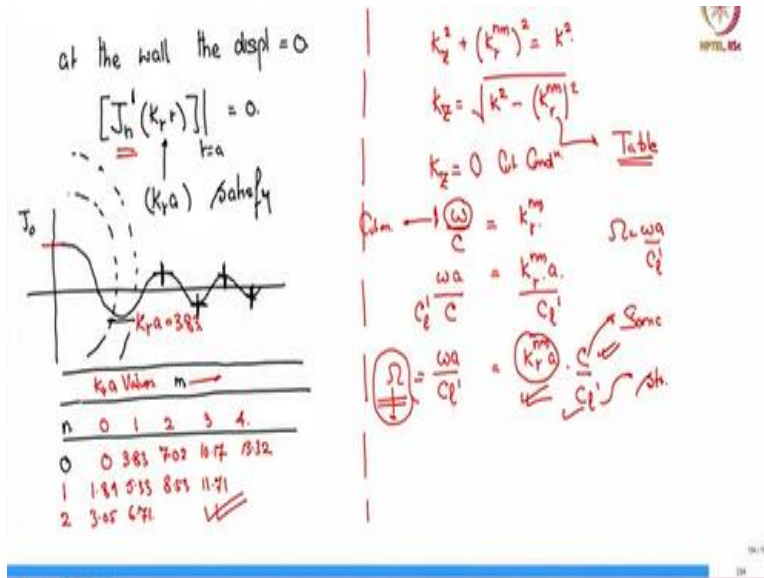 at the wall the displ = 0
[J_n'(k_r r)]|_{r=a} = 0.
(k_r a) satisfy
J_0
k_r a = 3.83
k_r a Values m →
n 0 1 2 3 4.
0 0 3.83 7.02 10.17 13.32
1 1.84 5.33 8.53 11.71
2 3.05 6.71
k_z^2 + (k_r^{nm})^2 = k^2.
k_z = √(k^2 - (k_r^{nm})^2)
→ Table
k_z = 0 Cut Cond^n
ω/C = k_r^{nm}.
Ω = ωa/C_l'
ωa/C C_l' = k_r^{nm} a./C_l'
Ω = ωa/C_l' = k_r^{nm} a . C/C_l'
Sonic
str.
NPTEL, IISc